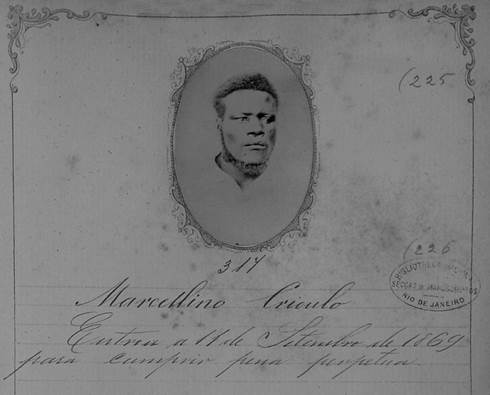 (225
317
(226
BIBLIOTHECA NACIONAL
SECÇÃO DE MANUSCRIPTOS
RIO DE JANEIRO
Marcellino Crioulo
Entrou a 11 de Setembro de 1869
para cumprir pena perpetua